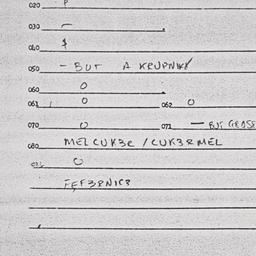 020 P
030
040 $
050 - BUT A KRUPNIK
060 O
061 O 062 O
070 O 071 — BUT GEOSE
080 MELCUK3R / CUK3RMEL
O
FEF3RNICR